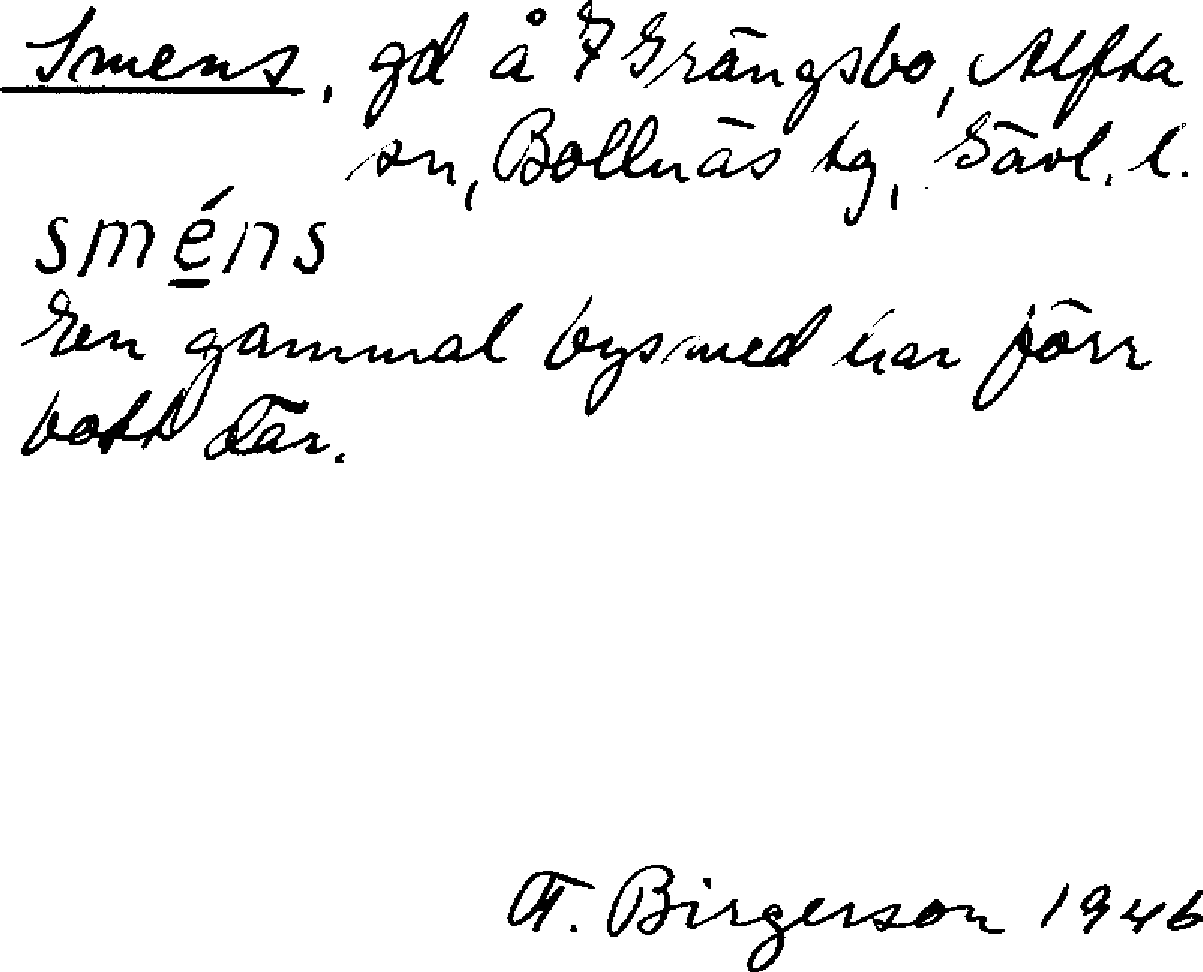 Smens, gd å 7 Grängsbo, Alfta
sn, Bollnäs tg, Gävl. l.
sméns
En gammal bysmed har förr
bott där.
F. Birgerson 1946